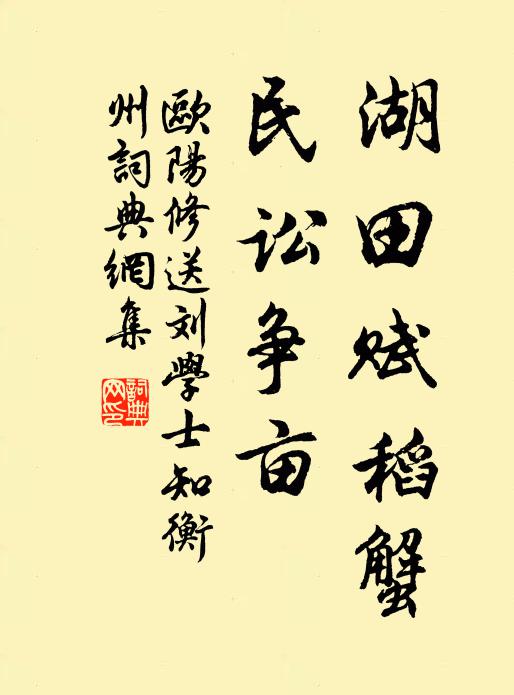 湖田赋稻蟹
民讼争亩
歐陽修送刘學士知衡
州詞典網集
詞典
网印